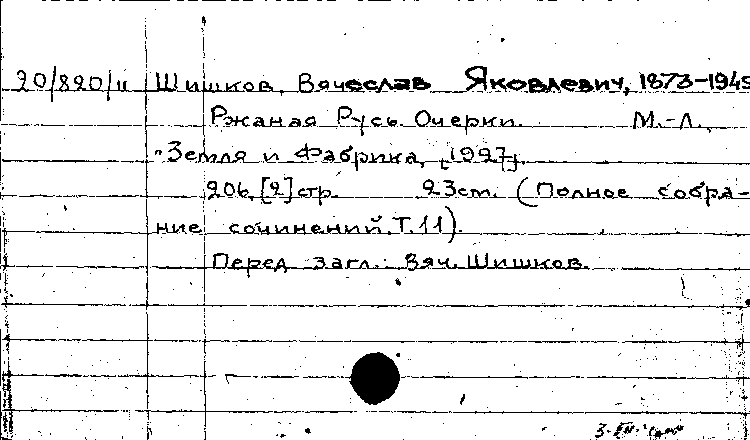 20/820/11 Шишков, Вячеслав Яковлевич, 1873-1945
Ржаная Русь. Очерки. М.-Л.,
"Земля и Фабрика, [1927].
206, [2] стр. 23 см. (Полное собра-
ние сочинений. Т.11).
Перед загл.: Вяч. Шишков.